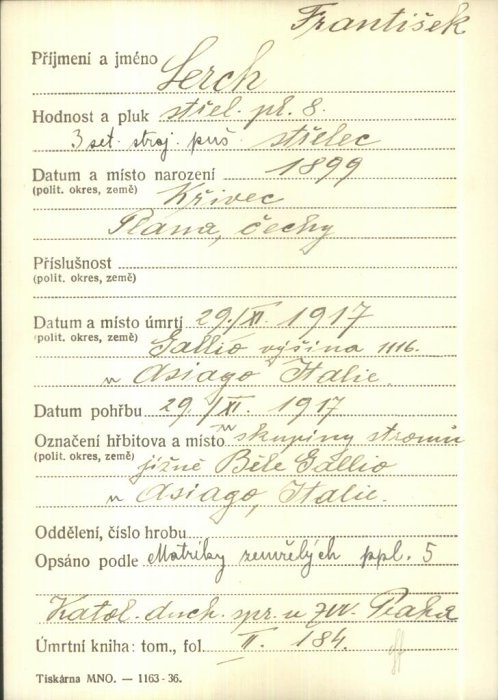 František
Příjmení a jméno Lerch
Hodnost a pluk střel. pl. 8.
3 set. stroj. puš. střelec
Datum a místo narození 1899
(polit. okres, země) Křivec
Plana, čechy
Příslušnost
(polit. okres, země)
Datum a místo úmrtí 29./XI. 1917
(polit. okres, země) Gallio výšina 1116.
u Asiago Italie.
Datum pohřbu 29./XI. 1917
Označení hřbitova a místo u skupiny stromů
(polit. okres, země) jižně Běle Gallio
u Asiago, Italie.
Oddělení, číslo hrobu
Opsáno podle Matriky zemřelých ppl. 5
Katol. duch. spr. u ZVV. Praha
Úmrtní kniha: tom., fol. II. 184.
Tiskárna MNO. — 1163-36.